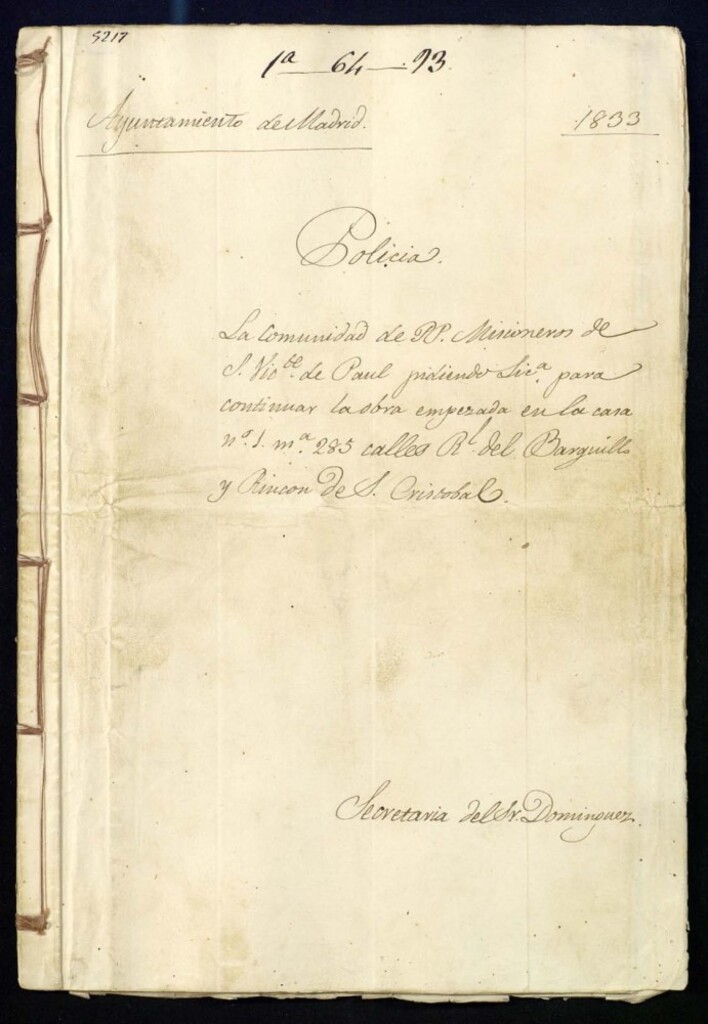 5217
1ª — 64 — 93.
Ayuntamiento de Madrid.
1833
Policia.
La Comunidad de PP. Misioneros de
S. Vic.te de Paul pidiendo Lic.ª para
continuar la obra empezada en la casa
n.º 1. m.ª 285 calles R.l del Barquillo
y Rincon de S. Cristobal.
Secretaria del Sr. Dominguez.